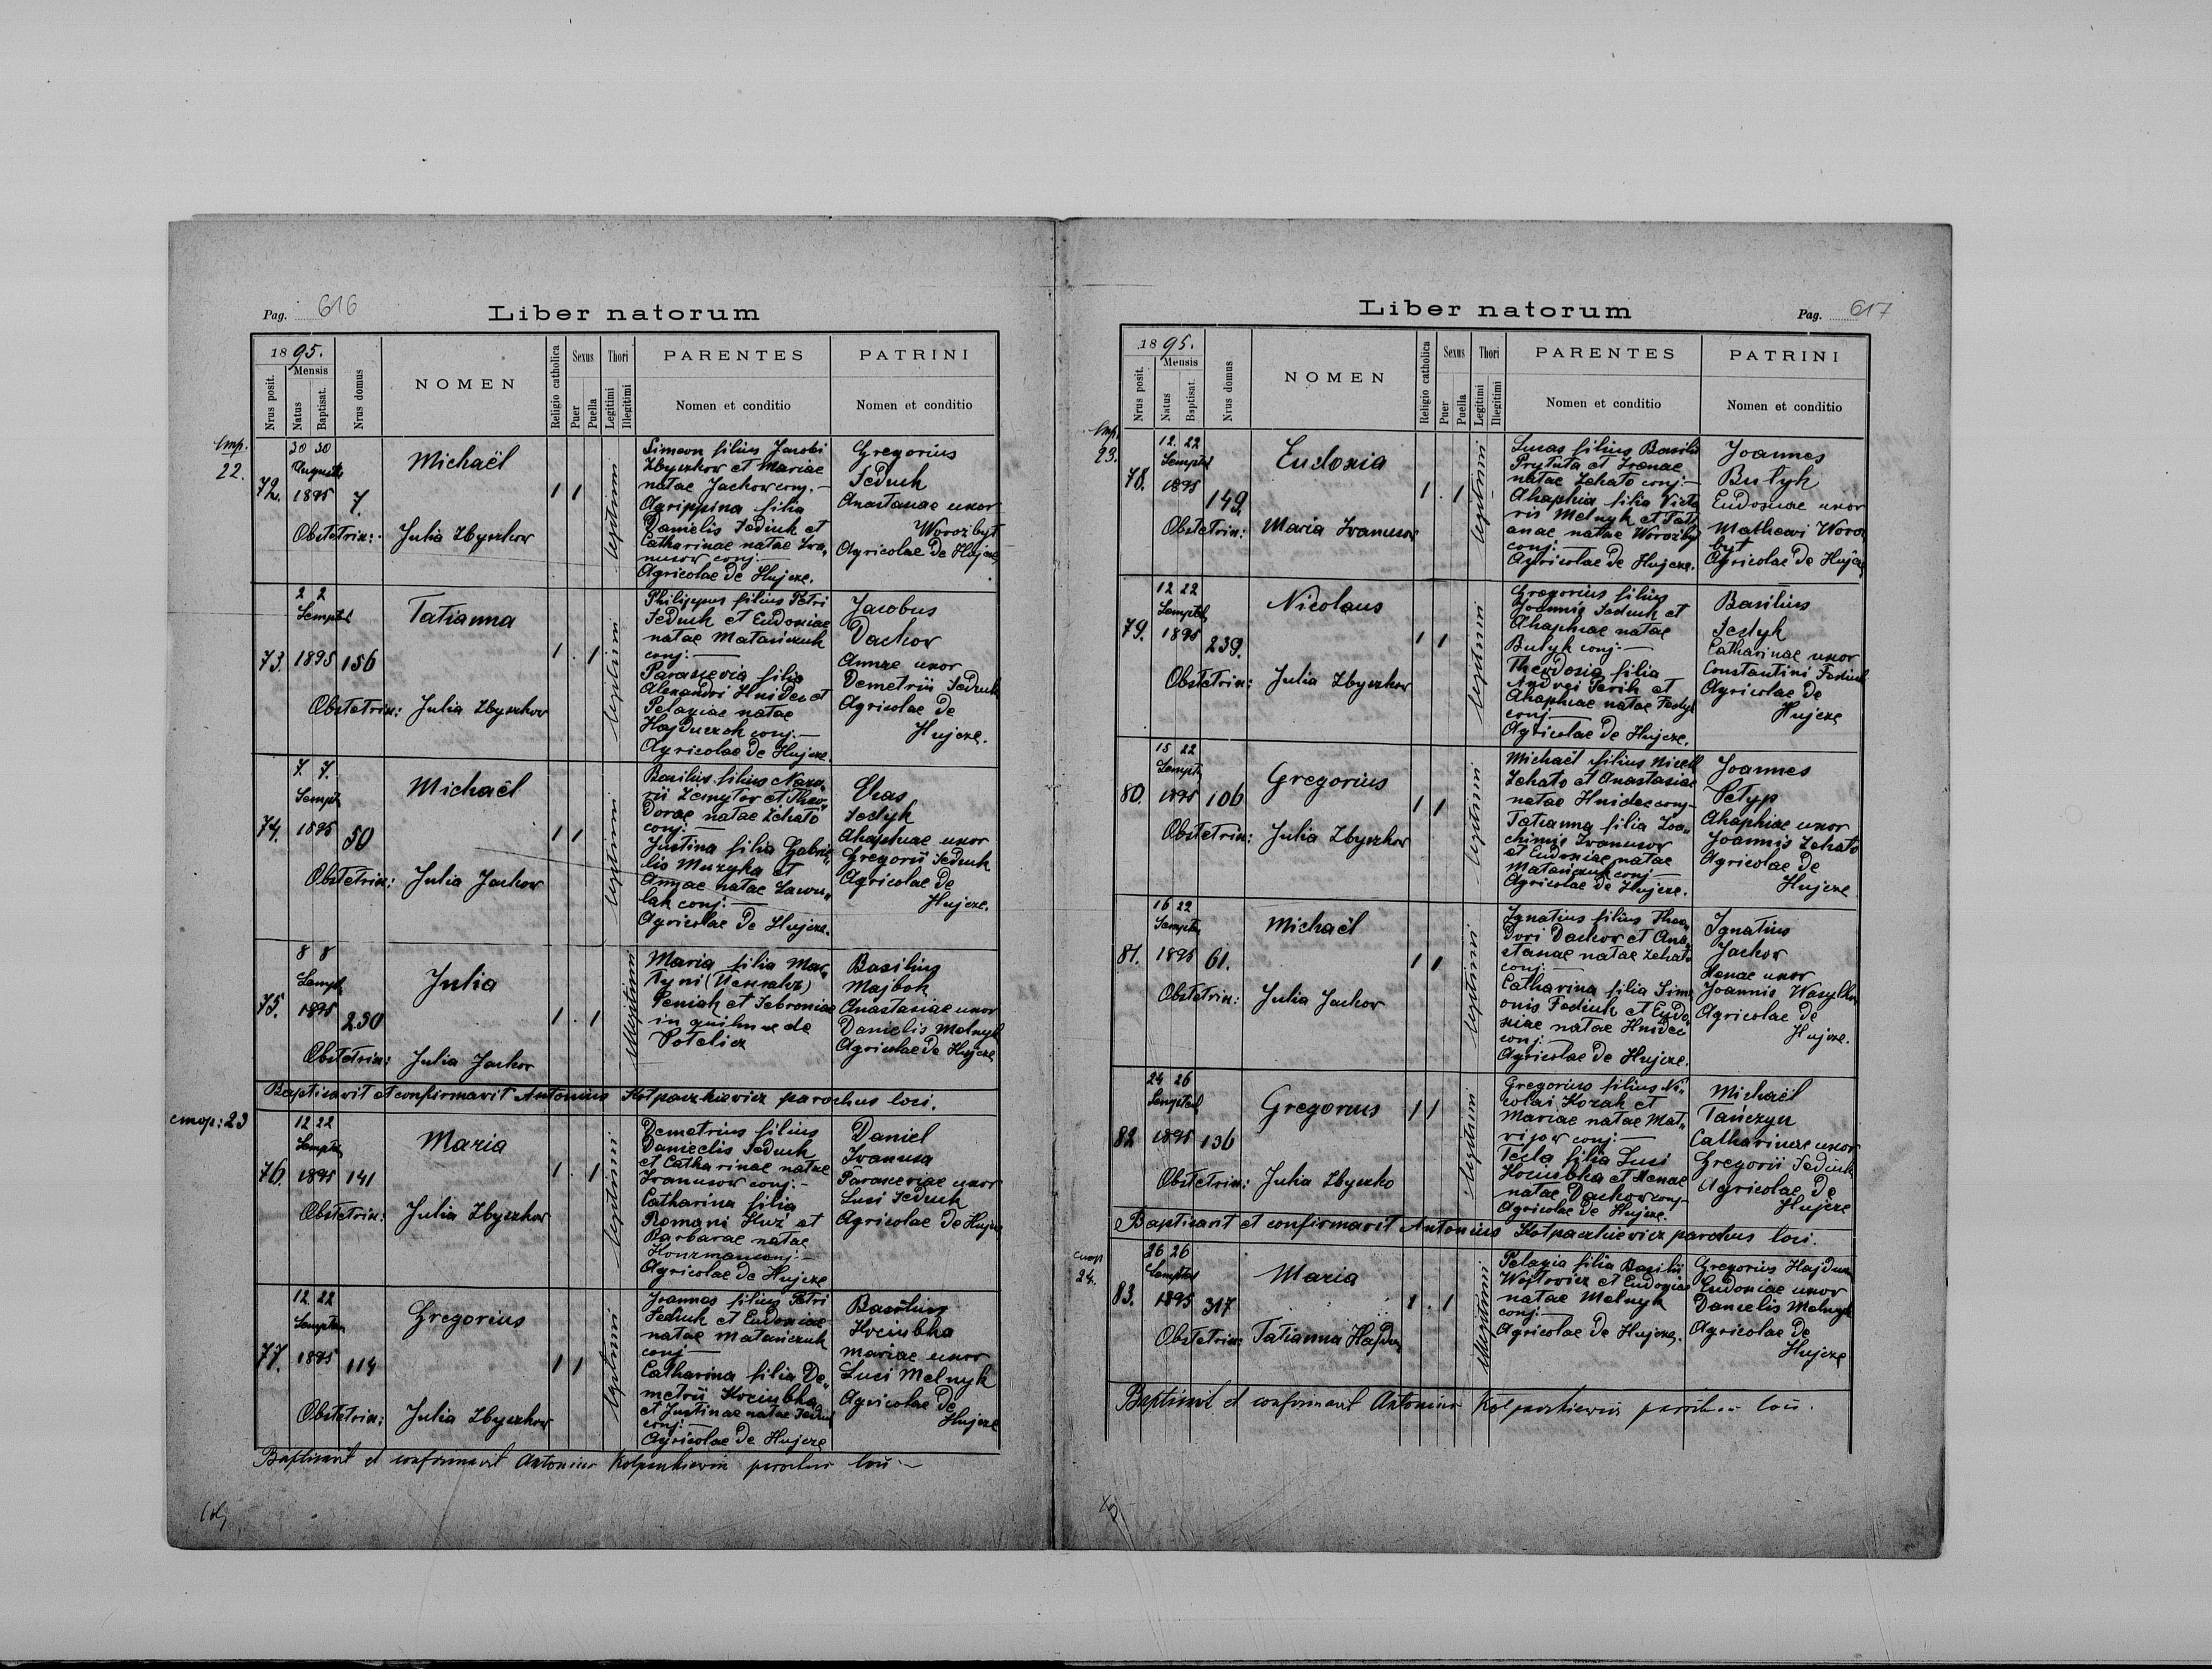 Pag. 616
Liber natorum
1895.
Mensis
Nrus posit.
Natus
Baptisat.
Nrus domus
NOMEN
Religio catholica
Sexus
Puer
Puella
Thori
Legitimi
Illegitimi
PARENTES
Nomen et conditio
PATRINI
Nomen et conditio
22.
72.
30 30
Augusti
1895
7.
Michaël
1 1
legitimi
Obstetrix: Julia Zbyszkow
Simeon filius Jacobi
Zbyszkow et Mariae
natae Jachow conj. —
Agrippina filia
Danielis Feduk et
Catharinae natae Iwa„
nusow conj. —
Agricolae de Hujcze.
Gregorius
Feduk
Anastasiae uxor
Worozbyt
Agricolae de Hujcze
73.
2 2
Septemb
1895
156
Tatianna
1 . 1
legitimi
Obstetrix: Julia Zbyszkow
Philippus filius Petri
Feduk et Eudoxiae
natae Matanczuk
conj: —
Parascevia filia
Alexandri Hnidec et
Pelagiae natae
Hajduczok conj: —
Agricolae de Hujcze.
Jacobus
Dachow
Annae uxor
Demetrii Feduk
Agricolae de
Hujcze.
74.
7. 7.
1895
50
Michaël
1 1
legitimi
Obstetrix: Julia Jachow
Basilius filius Naza„
rii Zamytor et Theo„
dorae natae Zehato
conj: —
Justina filia Gabrie„
lis Muzyka et
Annae natae Lawru„
lak conj: —
Agricolae de Hujcze.
Elias
Fedyk
Ahaphiae uxor
Gregorii Feduk
Agricolae de
Hujcze.
75.
8 8
1895
230
Julia
1 . 1
illegitimi
Obstetrix: Julia Jachow
Maria filia Mar„
tyni
Peniak et Febroniae
in quilinae de
Potelicz
Basilius
Majbok
Anastasiae uxor
Danielis Melnyk
Agricolae de Hujcze
Baptisavit et confirmavit Antonius Kolpaczkiewicz parochus loci.
23
76.
12 22
1895
141
Maria
1 . 1
legitimi
Obstetrix: Julia Zbyszkow
Demetrius filius
Danielis Feduk
et Catharinae natae
Iwanusow conj: —
Catharina filia
Romani Huz et
Barbarae natae
conj: —
Agricolae de Hujcze
Daniel
Iwanusa
Parasceviae uxor
Luci Feduk
Agricolae de Hujcze
77.
12 22
1895
114
Gregorius
1 1
legitimi
Obstetrix: Julia Zbyszkow
Joannes filius Petri
Feduk et Eudoxiae
natae Matanczuk
conj —
Catharina filia De„
metrii Kociubka
et Justinae natae Feduk
conj: —
Agricolae de Hujcze
Basilius
Kociubka
Mariae uxor
Luci Melnyk
Agricolae de
Hujcze
Baptisavit et confirmavit Antonius Kolpaczkiewicz parochus loci —
Liber natorum
Pag. 617
1895.
Mensis
Nrus posit.
Natus
Baptisat.
Nrus domus
NOMEN
Religio catholica
Sexus
Puer
Puella
Thori
Legitimi
Illegitimi
PARENTES
Nomen et conditio
PATRINI
Nomen et conditio
23.
78.
12. 22
1895
149.
Eudoxia
1 . 1
legitimi
Obstetrix: Maria Iwanusow
Lucas filius Basilii
Prytuta et Irenae
natae Zehato conj: —
Ahaphia filia Victo
ris Melnyk et Tati
anae natae Worozbyt
conj: —
Agricolae de Hujcze.
Joannes
Butyk
Eudoxiae uxor
Mathaei Woroz
byt
Agricolae de Hujcze
79.
12 22
1895
239.
Nicolaus
1 1
legitimi
Obstetrix: Julia Zbyszkow
Gregorius filius
Joannis Feduk et
Ahaphiae natae
Butyk conj: —
Theodosia filia
Andrei et
Ahaphiae natae Fedyk
conj —
Agricolae de Hujcze.
Basilius
Fedyk
Catharinae uxor
Constantini Feduk
Agricolae de
Hujcze
80.
15 22
1895
106
Gregorius
1 1
legitimi
Obstetrix: Julia Zbyszkow
Michaël filius
Zehato et Anastasiae
natae Hnidec conj —
Tatianna filia Joa„
chimi Iwanusow
et Eudoxiae natae
Matanczuk conj —
Agricolae de Hujcze.
Joannes
Petyp
Ahaphiae uxor
Joannis Zehato
Agricolae de
Hujcze
81.
16 22
1895
61.
Michaël
1 1
legitimi
Obstetrix: Julia Jachow
Ignatius filius Theo„
dori Dachow et Ana„
stasiae natae Zehato
conj: —
Catharina filia Sime
onis Feduk et Eudo
xiae natae Hnidec
conj: —
Agricolae de Hujcze.
Ignatius
Jachow
uxor
Joannis
Agricolae de
Hujcze.
82
24 26
1895
136
Gregorius
1 1
legitimi
Obstetrix: Julia Zbyszko
Gregorius filius Ni„
colai Kozak et
Mariae natae Mat„
wijow conj: —
Tecla filia Luci
Kociubka et
natae Dachow conj —
Agricolae de Hujcze.
Michaël
Tanczyn
Catharinae uxor
Gregorii Feduk
Agricolae de
Hujcze
Baptisavit et confirmavit Antonius Kolpaczkiewicz parochus loci.
24.
83.
26 26
1895
317
Maria
1 . 1
illegitimi
Obstetrix: Tatianna Hajduk
Pelagia filia Basilii
Wojtowicz et Eudoxiae
natae Melnyk
conj: —
Agricolae de Hujcze.
Gregorius Hajduk
Eudoxiae uxor
Danielis Melnyk
Agricolae de
Hujcze
Baptisavit et confirmavit Antonius Kolpaczkiewicz parochus loci.